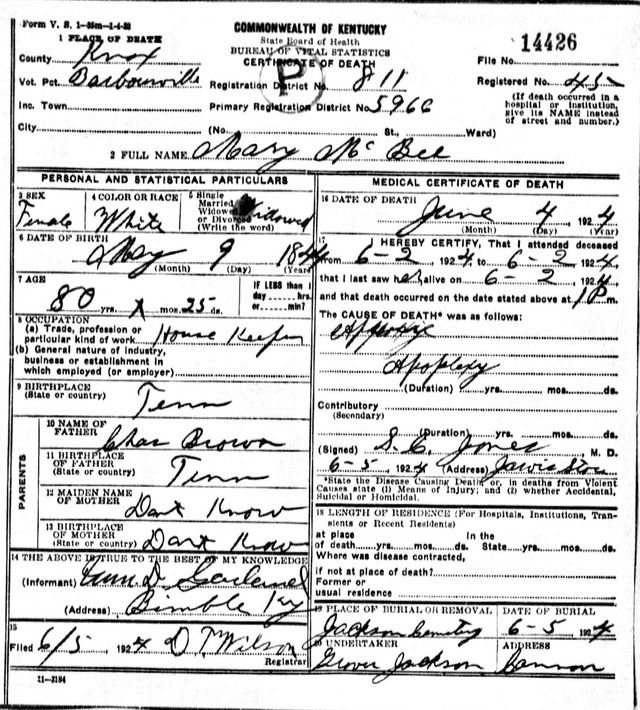 Form V. S. 1-35m-1-4-23
COMMONWEALTH OF KENTUCKY
State Board of Health
BUREAU OF VITAL STATISTICS
CERTIFICATE OF DEATH
P
14426
1 PLACE OF DEATH
County Knox
File No.
Vot. Pct. Barbourville
Registration District No. 811
Registered No. 45
Inc. Town
Primary Registration District No. 5966
(If death occurred in a hospital or institution, give its NAME instead of street and number.)
City (No. St., Ward)
2 FULL NAME Mary Mc Bee
PERSONAL AND STATISTICAL PARTICULARS
3 SEX Female
4 COLOR OR RACE White
5 Single Married Widowed or Divorced (Write the word) Widowed
6 DATE OF BIRTH May 9 1844
(Month) (Day) (Year)
7 AGE 80 yrs. mos. 25 ds.
IF LESS than 1 day hrs. or min?
8 OCCUPATION
(a) Trade, profession or particular kind of work House Keeper
(b) General nature of industry, business or establishment in which employed (or employer)
9 BIRTHPLACE (State or country) Tenn
PARENTS
10 NAME OF FATHER Chas Brown
11 BIRTHPLACE OF FATHER (State or country) Tenn
12 MAIDEN NAME OF MOTHER Dont Know
13 BIRTHPLACE OF MOTHER (State or country) Dont Know
14 THE ABOVE IS TRUE TO THE BEST OF MY KNOWLEDGE
(Informant) D.
(Address) Bimble Ky
15
Filed 6/5 1924 D T Wilson
Registrar
11-3184
MEDICAL CERTIFICATE OF DEATH
16 DATE OF DEATH June 4 1924
(Month) (Day) (Year)
17 I HEREBY CERTIFY, That I attended deceased
from 6-2 1924 to 6-2 1924,
that I last saw her alive on 6-2 1924,
and that death occurred on the date stated above at 1 P m.
The CAUSE OF DEATH* was as follows:
Apoplexy
(Duration) yrs. mos. ds.
Contributory
(Secondary)
(Duration) yrs. mos. ds.
(Signed) S. C. Jones M. D.
6-5 1924 (Address)
*State the Disease Causing Death, or, in deaths from Violent Causes state (1) Means of Injury; and (2) whether Accidental, Suicidal or Homicidal.
18 LENGTH OF RESIDENCE (For Hospitals, Institutions, Transients or Recent Residents)
at place of death yrs. mos. ds. In the State yrs. mos. ds.
Where was disease contracted,
if not at place of death?
Former or usual residence
19 PLACE OF BURIAL OR REMOVAL Jackson Cemetery
DATE OF BURIAL 6-5 1924
20 UNDERTAKER Grover Jackson
ADDRESS Cannon